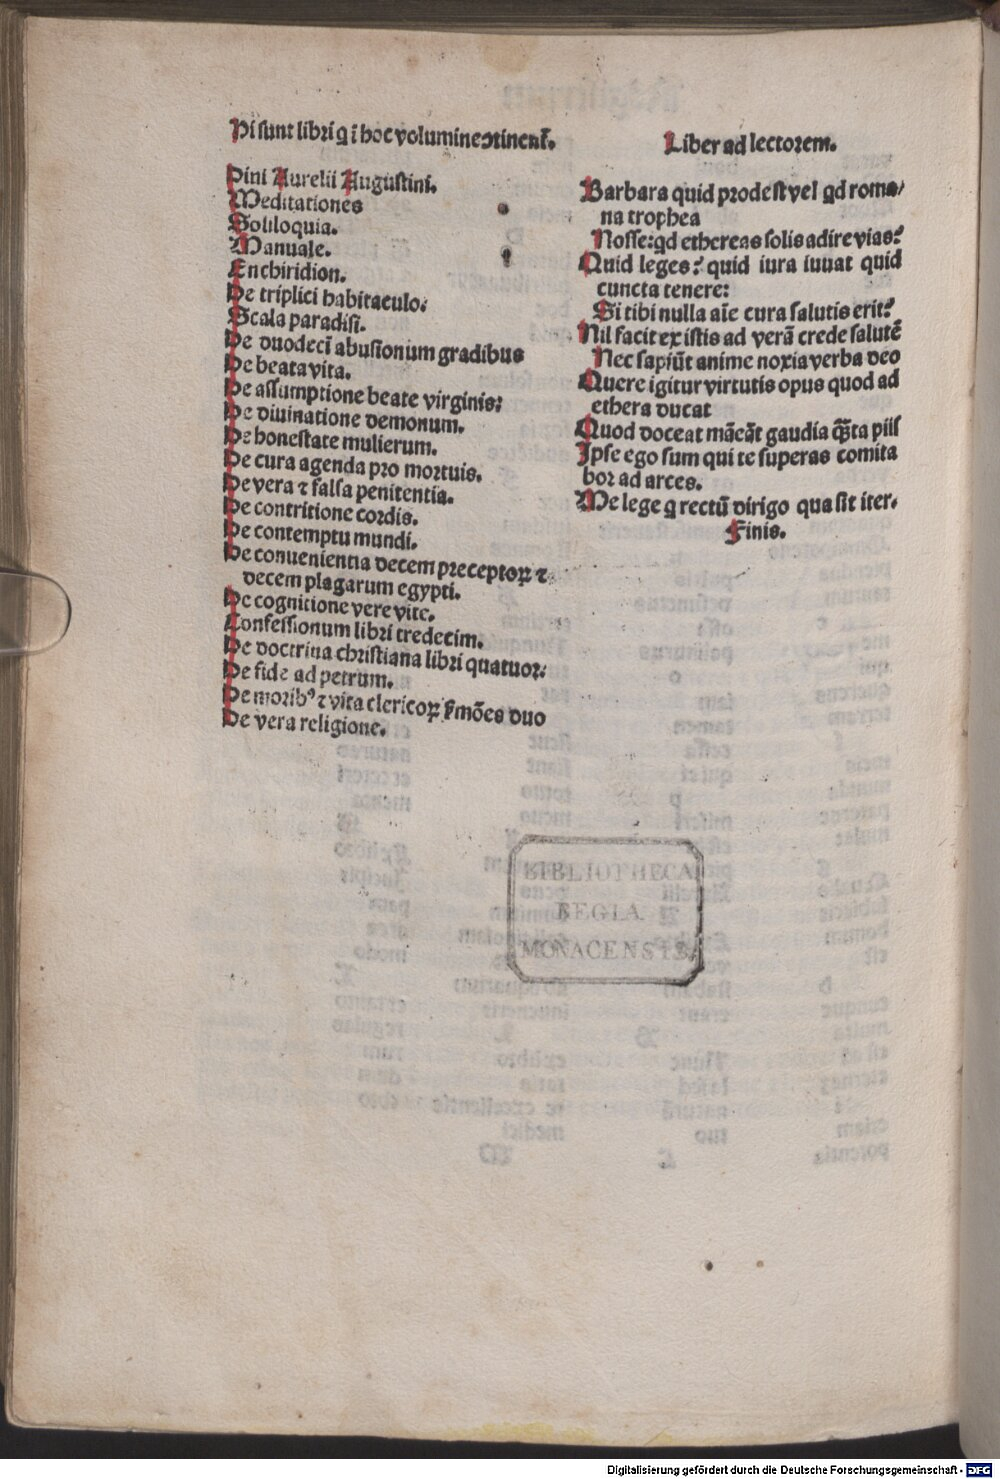 Hi sunt libri q̃ ĩ hoc volumine ↄtinent᷑.
Diui Aurelii Augustini.
Meditationes
Soliloquia.
Manuale.
Enchiridion.
De triplici habitaculo.
Scala paradisi.
De duodecĩ abusionum gradibus
De beata vita.
De assumptione beate virginis.
De diuinatione demonum.
De honestate mulierum.
De cura agenda pro mortuis.
De vera ⁊ falsa penitentia.
De contritione cordis.
De contemptu mundi.
De conuenientia decem preceptoꝝ ⁊
decem plagarum egypti.
De cognitione vere vite.
Confessionum libri tredecim.
De doctrina christiana libri quatuor.
De fide ad petrum.
De moribꝰ ⁊ vita clericoꝝ s̃mões duo
De vera religione.
Liber ad lectorem.
Barbara quid prodest vel qd roma/
na trophea
Nosse: qd ethereas solis adire vias?
Quid leges? quid iura iuuat quid
cuncta tenere:
Si tibi nulla aĩe cura salutis erit?
Nil facit ex istis ad verã crede salutẽ
Nec sapiũt anime noxia verba deo
Quere igitur virtutis opus quod ad
ethera ducat
Quod doceat mãeãt gaudia q̃ꝫta piis
Ipse ego sum qui te superas comita
bor ad arces.
Me lege q̃ rectũ dirigo qua sit iter.
Finis.
BIBLIOTHECA
REGIA
MONACENSIS.
Digitalisierung gefördert durch die Deutsche Forschungsgemeinschaft - DFG